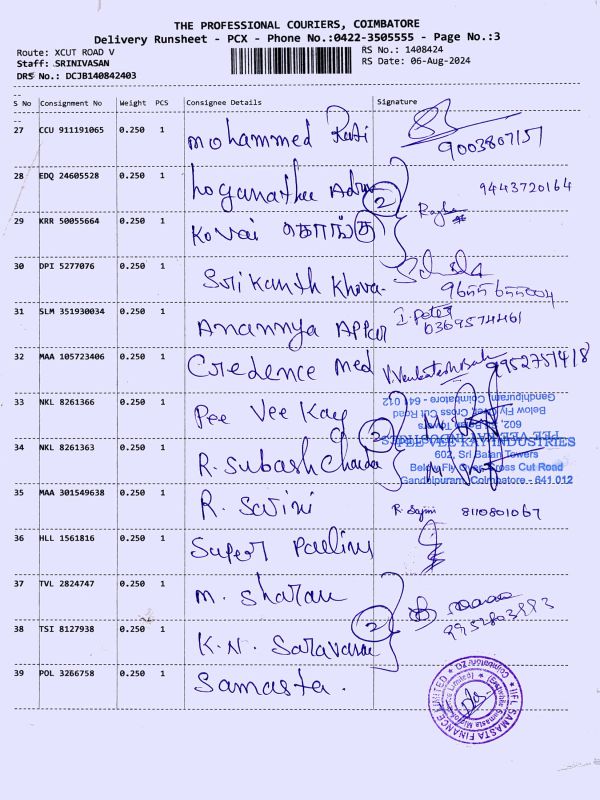 THE PROFESSIONAL COURIERS, COIMBATORE
Delivery Runsheet - PCX - Phone No.:0422-3505555 - Page No.:3
Route: XCUT ROAD V
RS No.: 1408424
Staff: SRINIVASAN
RS Date: 06-Aug-2024
DRS No.: DCJB140842403
S No Consignment No Weight PCS Consignee Details Signature
27 CCU 911191065 0.250 1 Mohammed Rafi 9003807151
28 EDQ 24605528 0.250 1 2 9443720164
29 KRR 50055664 0.250 1 Kovai
30 DPI 5277076 0.250 1 Srikanth Khova- 9655655004
31 SLM 351930034 0.250 1 Anannya Appar I. Peter 0369574461
32 MAA 105723406 0.250 1 Credence Med V. Venkatesh 9952751418
33 NKL 8261366 0.250 1 Pee Vee Kay 2
34 NKL 8261363 0.250 1 R. Subash Chanda
PEE VEE KAY INDUSTRIES
602, Sri Balan Towers
Below Fly Over, Cross Cut Road
Gandhipuram, Coimbatore - 641 012
35 MAA 301549638 0.250 1 R. Sarini 8110801067
36 HLL 1561816 0.250 1 Super Paulins
37 TVL 2824747 0.250 1 M. Sharau 2
38 TSI 8127938 0.250 1 K.N. Saravana
39 POL 3266758 0.250 1 Samasta.
IIFL SAMASTA FINANCE LIMITED